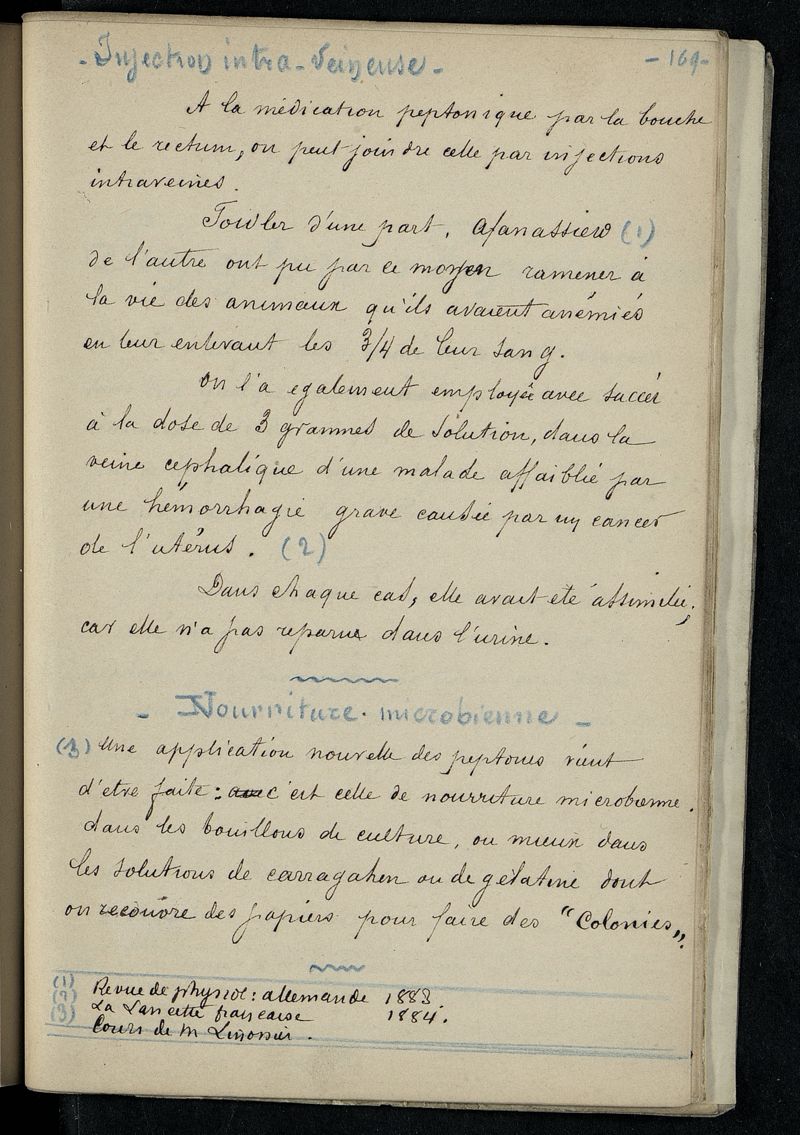 - Injection intra-Veineuse - - 169 -
A la médication peptonique par la bouche
et le rectum, on peut joindre celle par injections
intraveines.
Fowler d'une part, Afanassiew (1)
de l'autre ont pu par ce moyen ramener à
la vie des animaux qu'ils avaient anémiés
en leur enlevant les 3/4 de leur sang.
On l'a egalement employée avec succès
à la dose de 3 grammes de solution, dans la
veine cephalique d'une malade affaiblie par
une hémorrhagie grave causée par un cancer
de l'utérus. (2)
Dans chaque cas, elle avait été assimilée;
car elle n'a pas reparue dans l'urine.
- Nourriture microbienne -
(3) Une application nouvelle des peptones vient
d'etre faite: c'est celle de nourriture microbienne.
dans les bouillons de culture, ou mieux dans
les solutions de carragahen ou de gélatine dont
on recouvre des papiers pour faire des "Colonies".
(1) Revue de physiol: allemande 1883
(2) La Lancette française 1884.
(3) Cours de M Linossier.